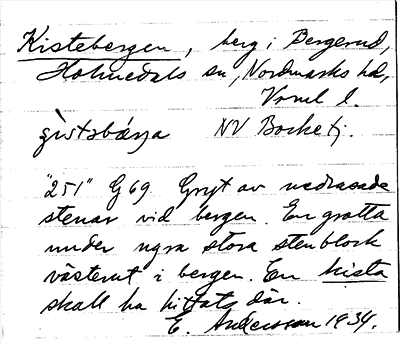 Kistebergen, berg i Bergerud,
Holmedals sn, Nordmarks hd,
Vrml l.
NV Bocketj.
"251" G69 Gryt av nedrasade
stenar vid bergen. En grotta
under ngra stora stenblock
västerut i bergen. En kista
skall ha hittats där.
E. Andersson 1934.